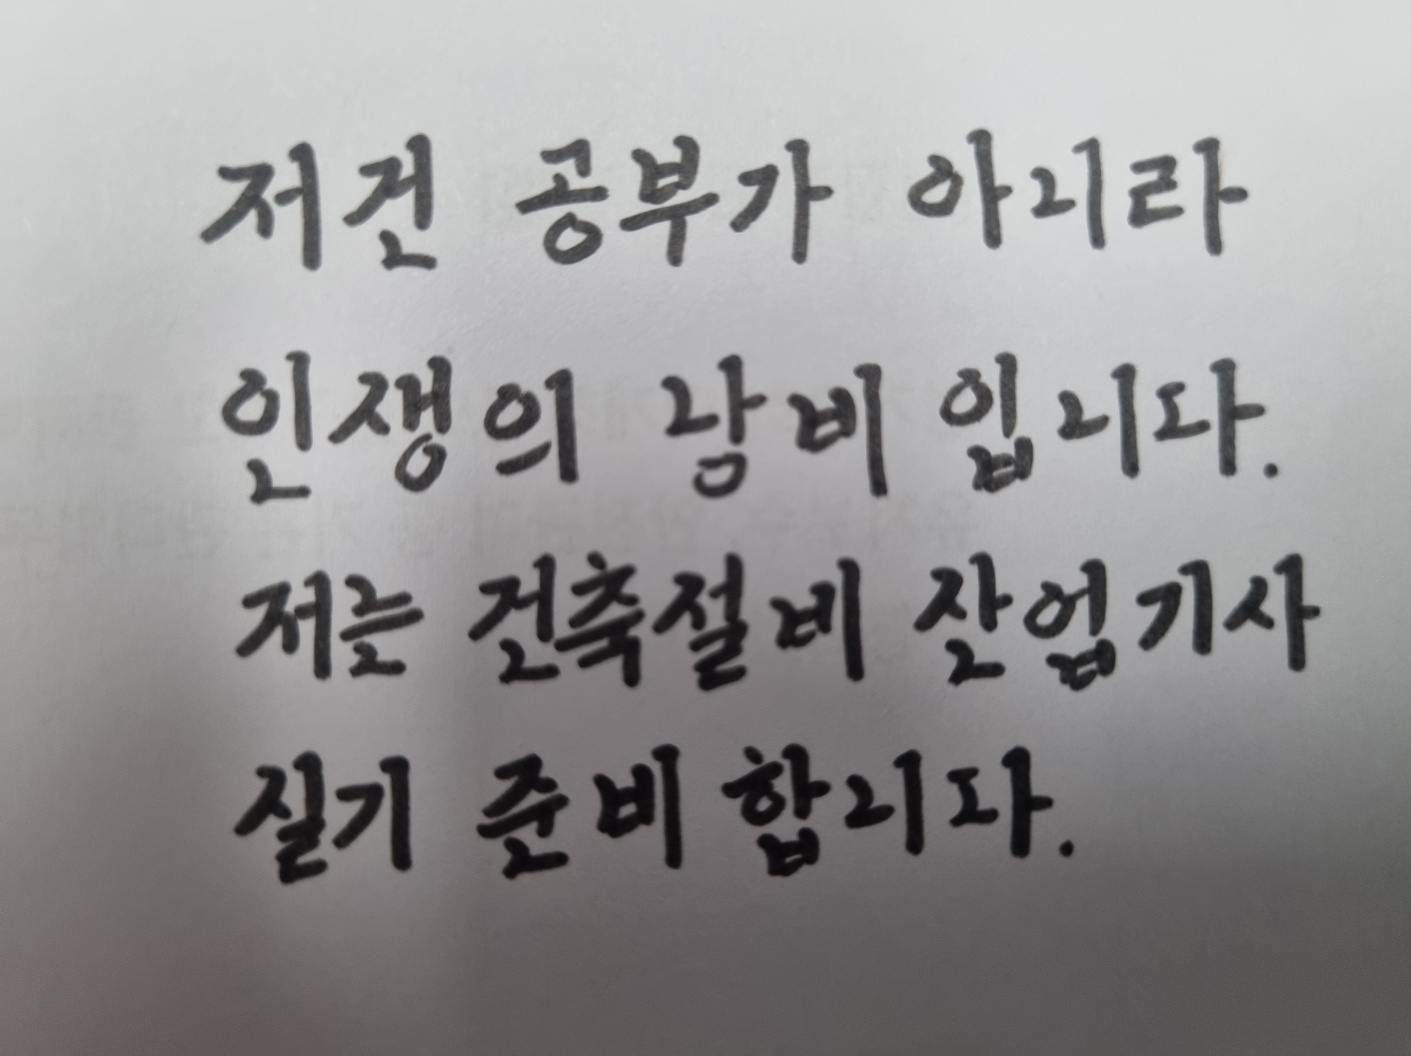 저건 공부가 아니라
인생의 낭비 입니다.
저는 건축설비 산업기사
실기 준비 합니다.